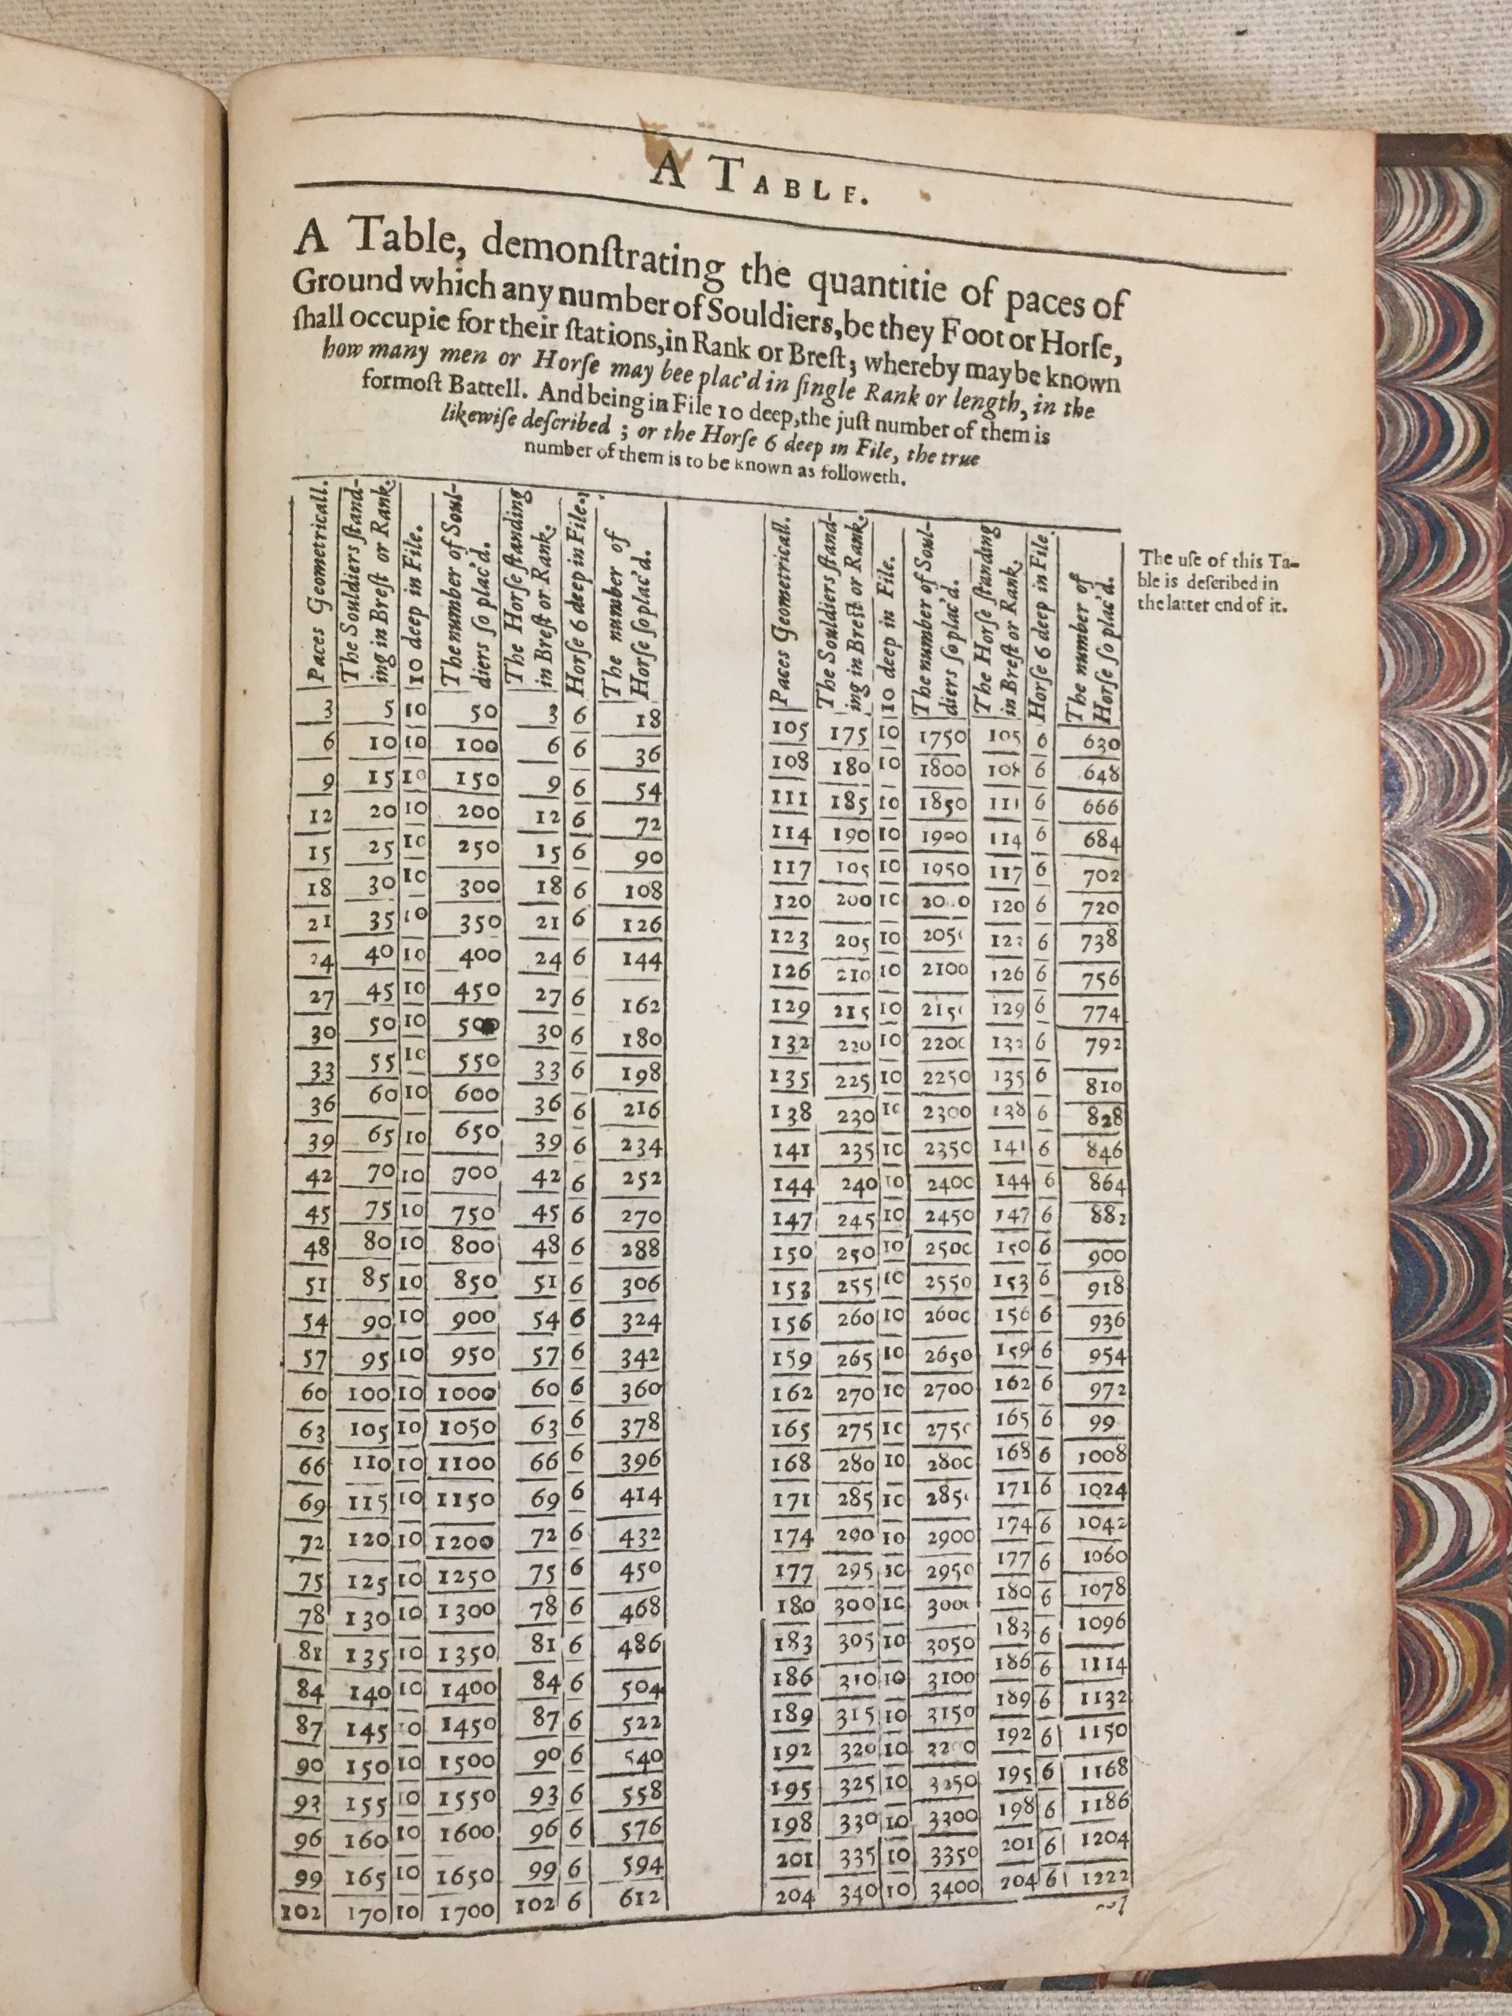 A TABLE.
A Table, demonſtrating the quantitie of paces of
Ground which any number of Souldiers, be they Foot or Horſe,
ſhall occupie for their ſtations, in Rank or Breſt; whereby may be known
how many men or Horſe may bee plac'd in ſingle Rank or length, in the
formoſt Battell. And being in File 10 deep, the juſt number of them is
likewiſe deſcribed ; or the Horſe 6 deep in File, the true
number of them is to be known as followeth.
Paces Geometricall.
The Souldiers ſtand-
ing in Breſt or Rank.
10 deep in File.
The number of Soul-
diers ſo plac'd.
The Horſe ſtanding
in Breſt or Rank.
Horſe 6 deep in File.
The number of
Horſe ſo plac'd.
3 5 10 50 3 6 18
6 10 10 100 6 6 36
9 15 10 150 9 6 54
12 20 10 200 12 6 72
15 25 10 250 15 6 90
18 30 10 300 18 6 108
21 35 10 350 21 6 126
24 40 10 400 24 6 144
27 45 10 450 27 6 162
30 50 10 500 30 6 180
33 55 10 550 33 6 198
36 60 10 600 36 6 216
39 65 10 650 39 6 234
42 70 10 700 42 6 252
45 75 10 750 45 6 270
48 80 10 800 48 6 288
51 85 10 850 51 6 306
54 90 10 900 54 6 324
57 95 10 950 57 6 342
60 100 10 1000 60 6 360
63 105 10 1050 63 6 378
66 110 10 1100 66 6 396
69 115 10 1150 69 6 414
72 120 10 1200 72 6 432
75 125 10 1250 75 6 450
78 130 10 1300 78 6 468
81 135 10 1350 81 6 486
84 140 10 1400 84 6 504
87 145 10 1450 87 6 522
90 150 10 1500 90 6 540
93 155 10 1550 93 6 558
96 160 10 1600 96 6 576
99 165 10 1650 99 6 594
102 170 10 1700 102 6 612
Paces Geometricall.
The Souldiers ſtand-
ing in Breſt or Rank.
10 deep in File.
The number of Soul-
diers ſo plac'd.
The Horſe ſtanding
in Breſt or Rank.
Horſe 6 deep in File.
The number of
Horſe ſo plac'd.
105 175 10 1750 105 6 630
108 180 10 1800 108 6 648
111 185 10 1850 111 6 666
114 190 10 1900 114 6 684
117 105 10 1950 117 6 702
120 200 10 2000 120 6 720
123 205 10 2050 123 6 738
126 210 10 2100 126 6 756
129 215 10 2150 129 6 774
132 220 10 2200 132 6 792
135 225 10 2250 135 6 810
138 230 10 2300 138 6 828
141 235 10 2350 141 6 846
144 240 10 2400 144 6 864
147 245 10 2450 147 6 882
150 250 10 2500 150 6 900
153 255 10 2550 153 6 918
156 260 10 2600 156 6 936
159 265 10 2650 159 6 954
162 270 10 2700 162 6 972
165 275 10 2750 165 6 99
168 280 10 2800 168 6 1008
171 285 10 2850 171 6 1024
174 290 10 2900 174 6 1042
177 295 10 2950 177 6 1060
180 300 10 3000 180 6 1078
183 305 10 3050 183 6 1096
186 310 10 3100 186 6 1114
189 315 10 3150 189 6 1132
192 320 10 3200 192 6 1150
195 325 10 3250 195 6 1168
198 330 10 3300 198 6 1186
201 335 10 3350 201 6 1204
204 340 10 3400 204 6 1222
The uſe of this Ta-
ble is deſcribed in
the latter end of it.